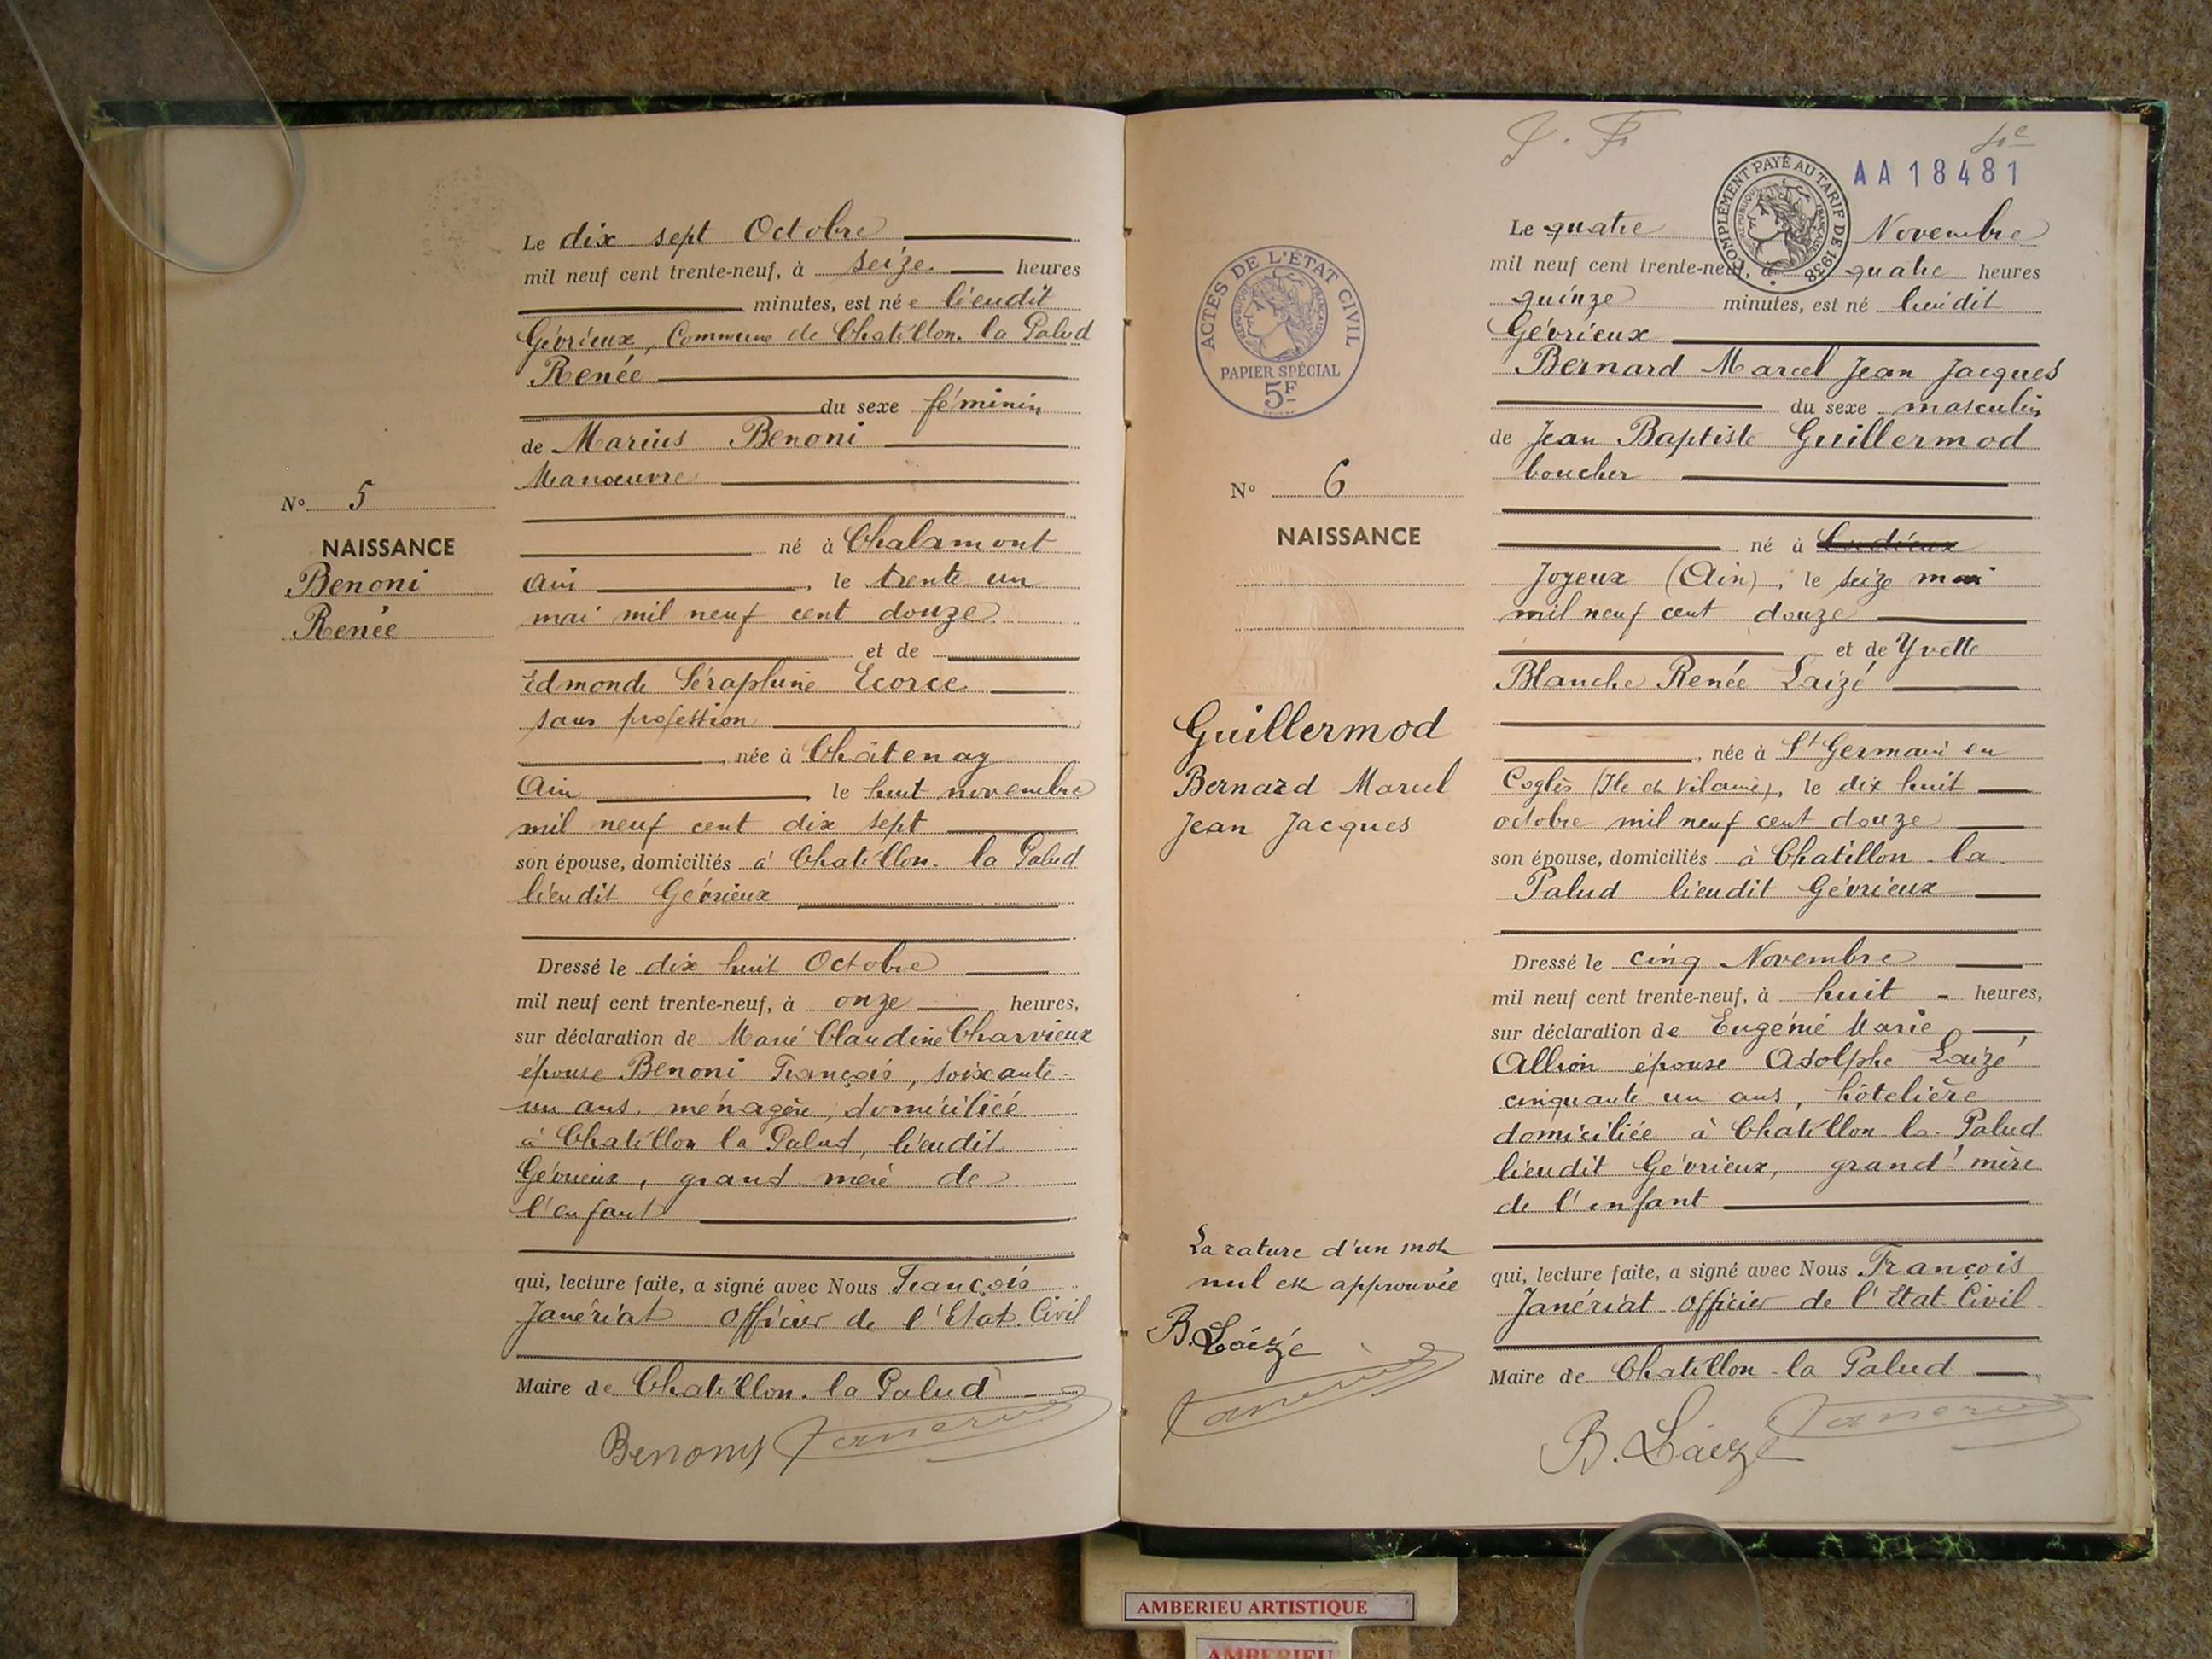 Le dix sept Octobre
mil neuf cent trente-neuf, à seize heures
minutes, est né e lieudit
Gévrieux, Commune de Chatillon. la Palud
Renée
du sexe féminin
de Marius Benoni
Manœuvre
né à Chalamont
Ain, le trente un
mai mil neuf cent douze
et de
Edmonde Séraphine Ecorce
sans profession
née à Châtenay
Ain le huit novembre
mil neuf cent dix sept
son épouse, domiciliés à Chatillon. la Palud
lieudit Gévrieux
Dressé le dix huit Octobre
mil neuf cent trente-neuf, à onze heures,
sur déclaration de Marie Claudine Charvieux
épouse Benoni François, soixante
un ans, ménagère, domiciliée
à Chatillon la Palud, lieudit
Gévrieux, grand mère de
l'enfant
qui, lecture faite, a signé avec Nous François
Janériat officier de l'Etat. Civil
Maire de Chatillon. la Palud
Benony
N° 5
NAISSANCE
Benoni
Renée
J. F.
AA 18481
COMPLÉMENT PAYÉ AU TARIF DE 1938
RÉPUBLIQUE FRANÇAISE
ACTES DE L'ÉTAT CIVIL
RÉPUBLIQUE FRANÇAISE
PAPIER SPÉCIAL
5F
N° 6
NAISSANCE
Guillermod
Bernard Marcel
Jean Jacques
La rature d'un mot
nul est approuvée
B. Láizé
Le quatre Novembre
mil neuf cent trente-neuf, à quatre heures
quinze minutes, est né lieudit
Gévrieux
Bernard Marcel Jean Jacques
du sexe masculin
de Jean Baptiste Guillermod
boucher
né à
Joyeux (Ain), le seize mai
mil neuf cent douze
et de Yvette
Blanche Renée Laizé
née à St Germain en
Coglès (Ile et Vilaine), le dix huit
octobre mil neuf cent douze
son épouse, domiciliés à Chatillon - la
Palud lieudit Gévrieux
Dressé le cinq Novembre
mil neuf cent trente-neuf, à huit - heures,
sur déclaration de Eugénie Marie
Allion épouse Adolphe Laizé
cinquante un ans, hôtelière
domiciliée à Chatillon la Palud
lieudit Gévrieux, grand'mère
de l'enfant
qui, lecture faite, a signé avec Nous François
Janériat officier de l'Etat Civil
Maire de Chatillon - la Palud
B. Láizé
AMBERIEU ARTISTIQUE
AMBERIEU